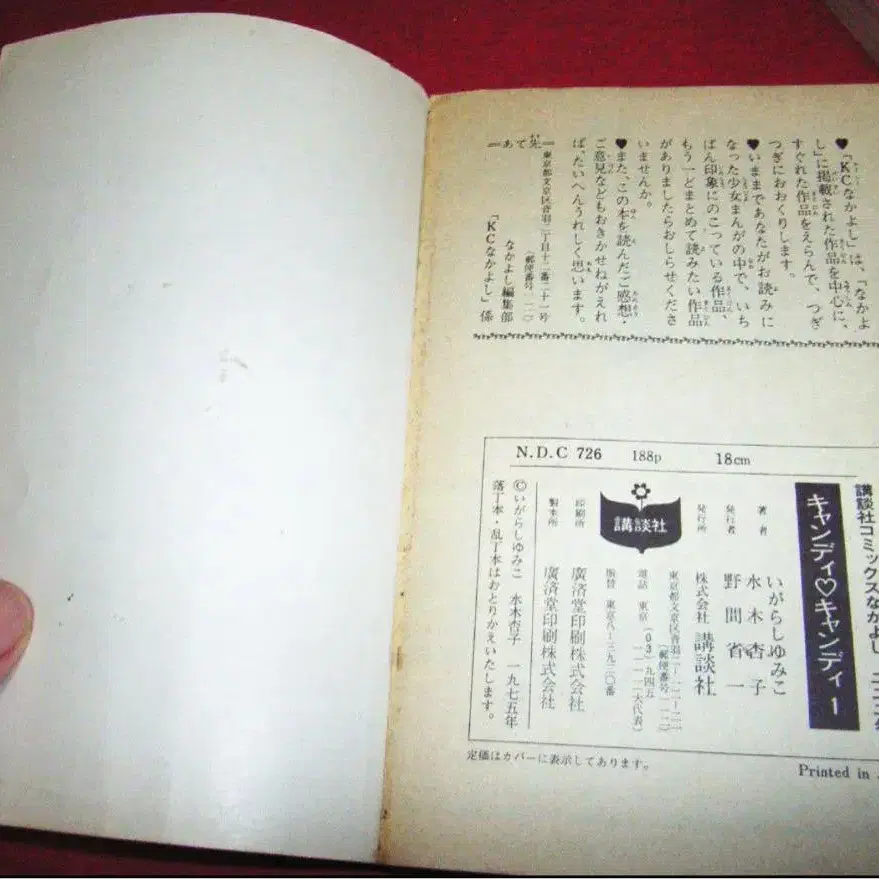 ♥「KCなかよし」は、「なかよ
し」に掲載された作品を中心に、
すぐれた作品をえらんで、つぎ
つぎにおおくりします。
♥いままであなたがお読みに
なった少女まんがの中で、いち
ばん印象にのこっている作品、
もう一どまとめて読みたい作品
がありましたらおしらせくださ
いませんか。
♥また、この本を読んだご感想・
ご意見などもおきかせねがえれ
ば、たいへんうれしく思います。
＝あて先＝
東京都文京区音羽二丁目十二番二十一号
(郵便番号一一二)
なかよし編集部
「KCなかよし」係
N.D.C 726 188p 18cm
講談社コミックスなかよし
キャンディ♡キャンディ 1
著者 いがらしゆみこ
水木杏子
発行者 野間省一
発行所 株式会社 講談社
東京都文京区音羽二-一二-二一
(郵便番号一一二)
電話 東京(03)九四五
一一一一(大代表)
振替 東京八-三九三〇番
講談社
印刷所 廣済堂印刷株式会社
製本所 廣済堂印刷株式会社
©いがらしゆみこ 水木杏子 一九七五年
落丁本・乱丁本はおとりかえいたします。
定価はカバーに表示してあります。
Printed in